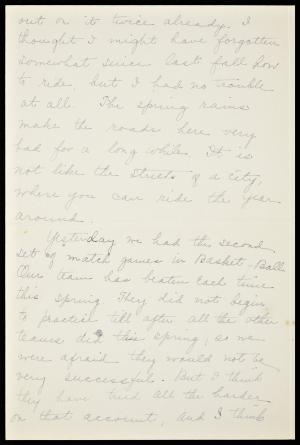 out on it twice already. I
thought I might have forgotten
somewhat since last fall how
to ride, but I had no trouble
at all. The spring rains
make the roads here very
bad for a long while. It is
not like the streets of a city,
where you can ride the year
around.
Yesterday we had the second
set of match games in Basket-Ball.
Our team has beaten each time
this spring. They did not begin
to practise till after all the other
teams did this spring, so we
were afraid they would not be
very successful. But I think
they have tried all the harder
on that account, and I think